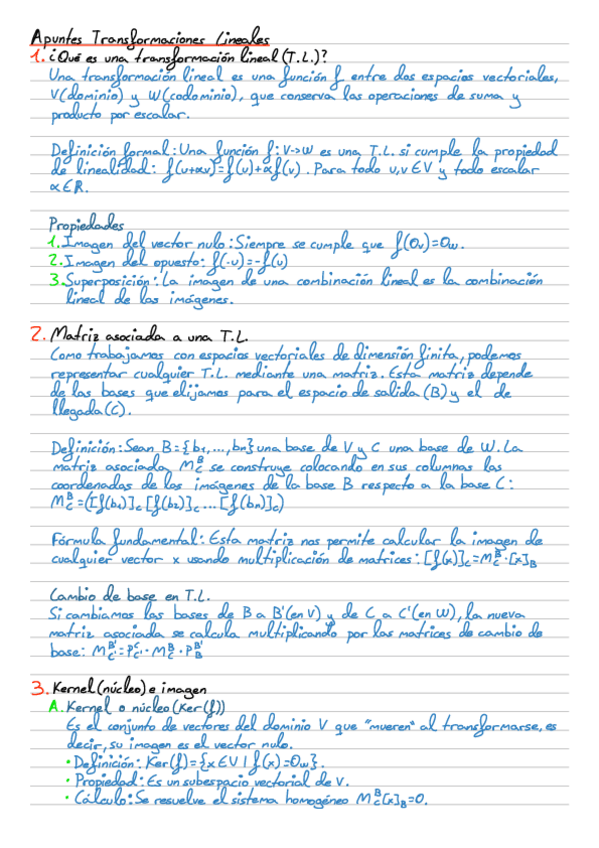 Apuntes Transformaciones Lineales
1. ¿Qué es una transformación lineal (T.L.)?
Una transformación lineal es una función f entre dos espacios vectoriales,
V(dominio) y W(codominio), que conserva las operaciones de suma y
producto por escalar.
Definición formal: Una función f: V->W es una T.L. si cumple la propiedad
de linealidad: f(u+αv)=f(u)+αf(v). Para todo u,v∈V y todo escalar
α∈R.
Propiedades
1. Imagen del vector nulo: Siempre se cumple que f(0v)=0w.
2. Imagen del opuesto: f(-u)=-f(u)
3. Superposición: La imagen de una combinación lineal es la combinación
lineal de las imágenes.
2. Matriz asociada a una T.L.
Como trabajamos con espacios vectoriales de dimensión finita, podemos
representar cualquier T.L. mediante una matriz. Esta matriz depende
de las bases que elijamos para el espacio de salida (B) y el de
llegada (C).
Definición: Sean B={b₁,...,bn} una base de V y C una base de W. La
matriz asociada M_C^B se construye colocando en sus columnas las
coordenadas de las imágenes de la base B respecto a la base C:
M_C^B=([f(b₁)]_C [f(b₂)]_C ... [f(bn)]_C)
Fórmula fundamental: Esta matriz nos permite calcular la imagen de
cualquier vector x usando multiplicación de matrices: [f(x)]_C=M_C^B·[x]_B
Cambio de base en T.L.
Si cambiamos las bases de B a B'(en V) y de C a C'(en W), la nueva
matriz asociada se calcula multiplicando por las matrices de cambio de
base: M_C'^B'=P_C'^C·M_C^B·P_B^B'
3. Kernel (núcleo) e imagen
A. Kernel o núcleo (Ker(f))
Es el conjunto de vectores del dominio V que "mueren" al transformarse, es
decir, su imagen es el vector nulo.
• Definición: Ker(f)={x∈V | f(x)=0w}.
• Propiedad: Es un subespacio vectorial de V.
• Cálculo: Se resuelve el sistema homogéneo M_C^B[x]_B=0.